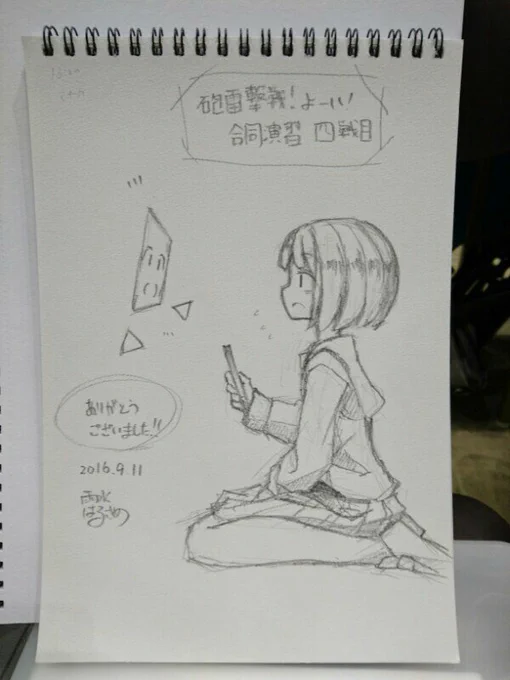 砲雷撃戦!よーい!
合同演習 四戦目
ありがとう
ございました!!
2016.9.11
はるさめ